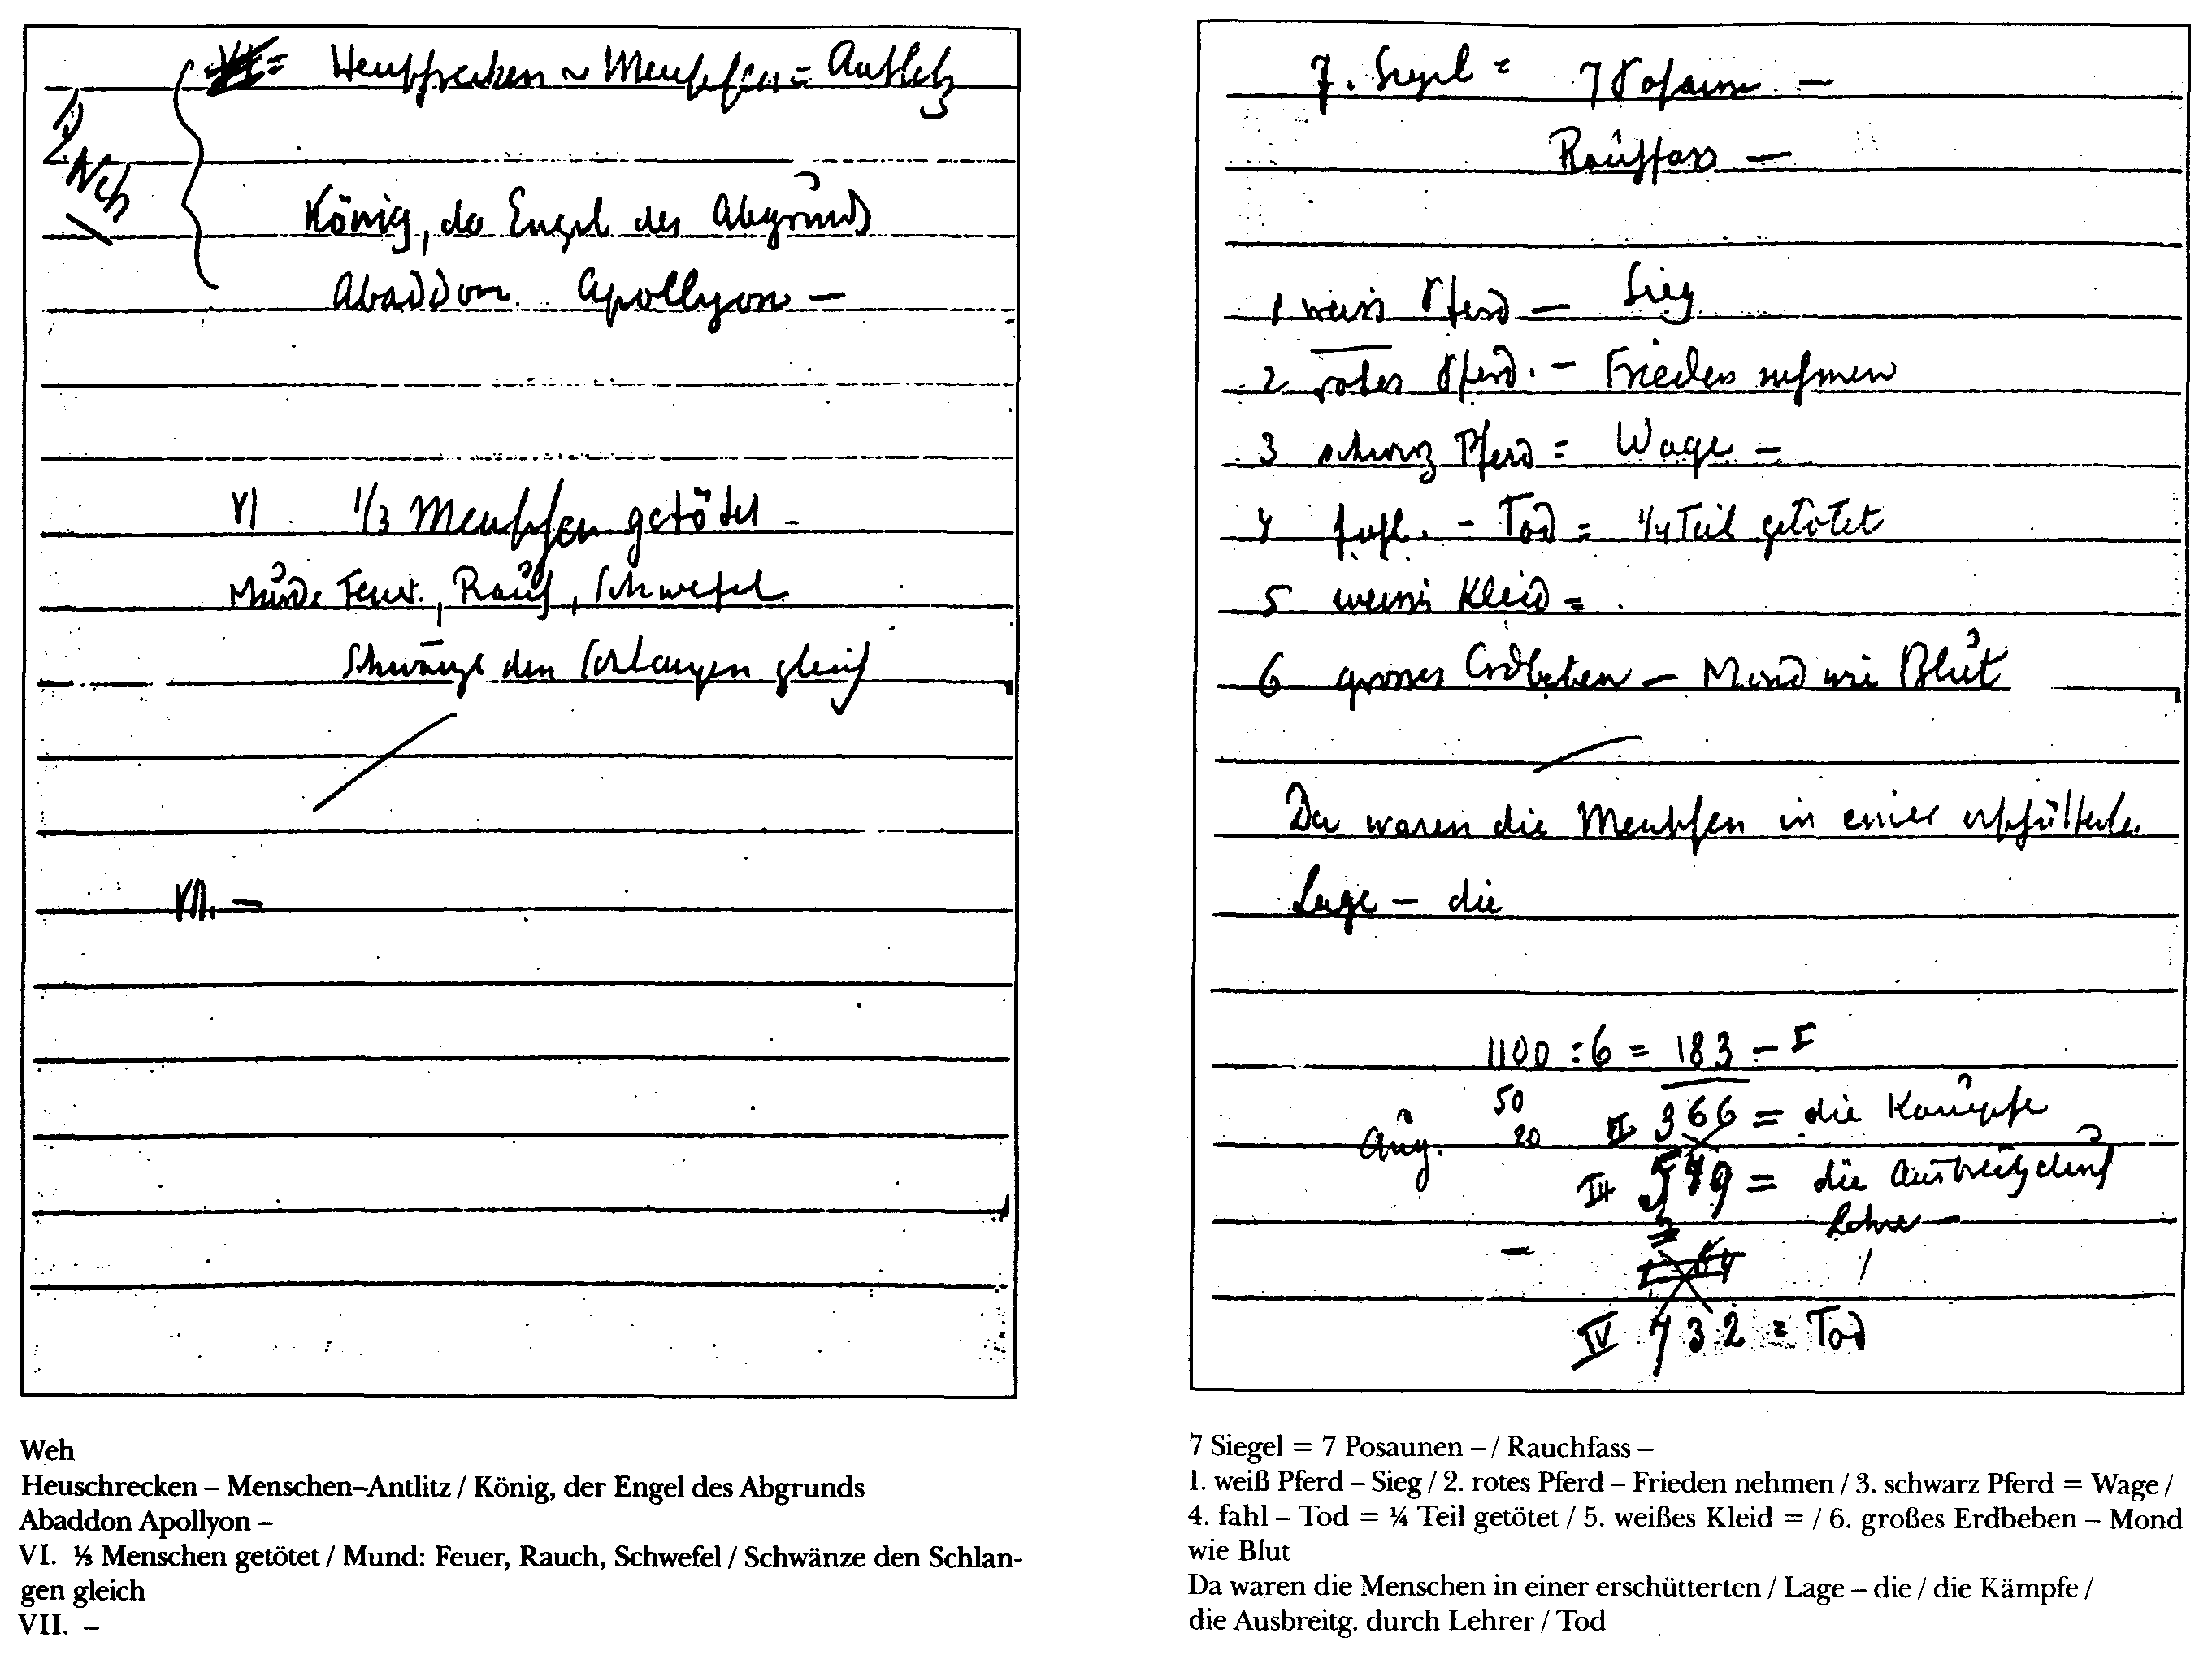 Heuschrecken ~ Menschen = Antlitz
Weh
König, der Engel des Abgrunds
Abaddon Apollyon —
VI 1/3 Menschen getötet —
Mund: Feuer, Rauch, Schwefel
Schwänze den Schlangen gleich
VII. —
Weh
Heuschrecken – Menschen–Antlitz / König, der Engel des Abgrunds
Abaddon Apollyon –
VI. ⅓ Menschen getötet / Mund: Feuer, Rauch, Schwefel / Schwänze den Schlan-
gen gleich
VII. –
7. Siegel = 7 Posaunen —
Rauchfass —
1 weiss Pferd — Sieg
2 rotes Pferd. — Frieden nehmen
3 schwarz Pferd = Wage —
4 fahl. — Tod = 1/4 Teil getötet
5 weisses Kleid =
6 grosses Erdbeben — Mond wie Blut
Da waren die Menschen in einer erschütterten
Lage — die
1100 : 6 = 183 — I
50
II 366 = die Kämpfe
Aug. 20
III 549 = die Ausbreitg durch
Lehrer —
IV 732 = Tod
7 Siegel = 7 Posaunen – / Rauchfass –
1. weiß Pferd – Sieg / 2. rotes Pferd – Frieden nehmen / 3. schwarz Pferd = Wage /
4. fahl – Tod = ¼ Teil getötet / 5. weißes Kleid = / 6. großes Erdbeben – Mond
wie Blut
Da waren die Menschen in einer erschütterten / Lage – die / die Kämpfe /
die Ausbreitg. durch Lehrer / Tod